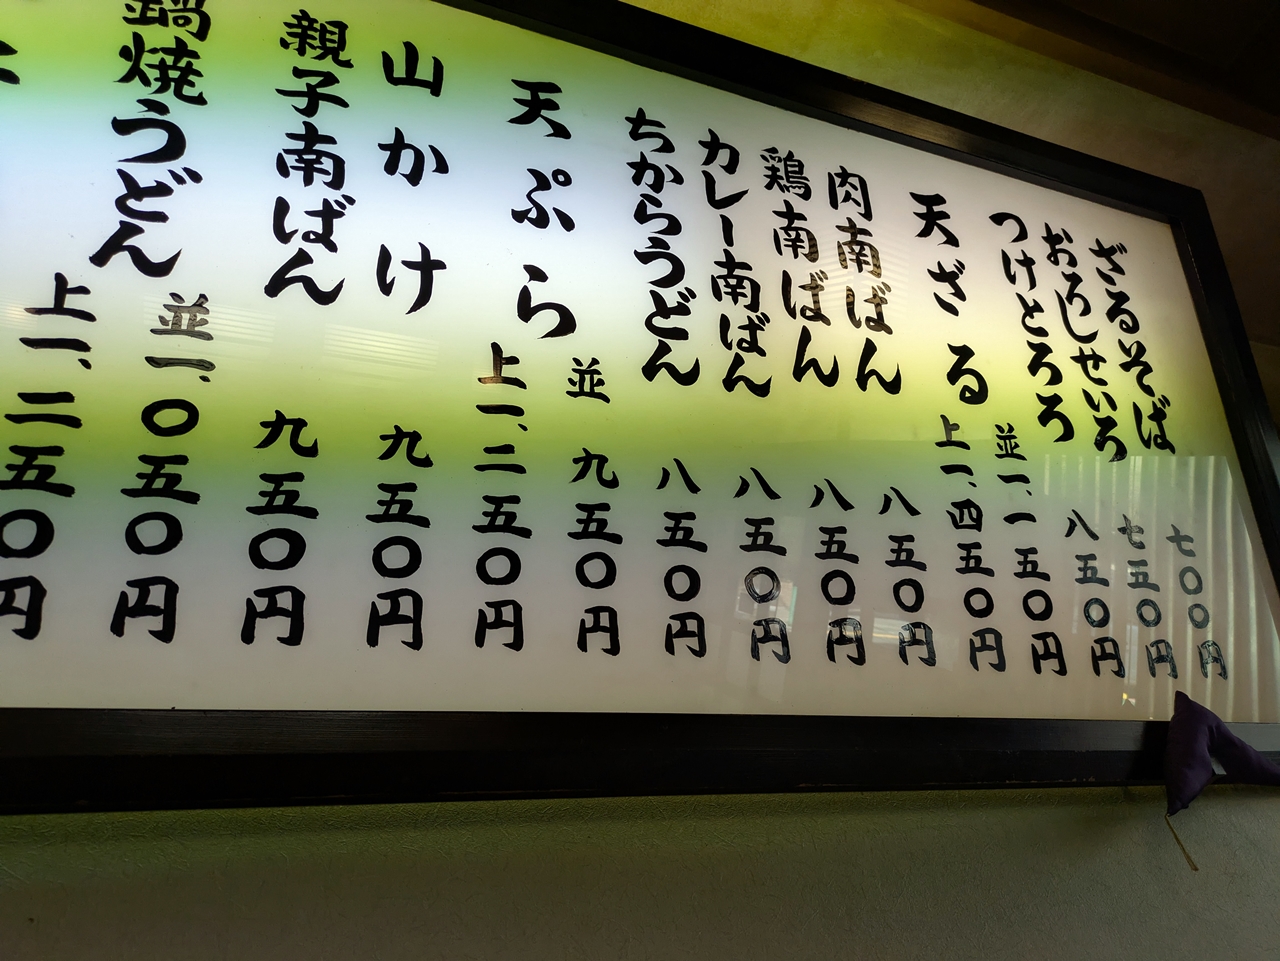 ざるそば 七〇〇円
おろしせいろ 七五〇円
つけとろろ 八五〇円
天ざる 並一、一五〇円
上一、四五〇円
肉南ばん 八五〇円
鶏南ばん 八五〇円
カレー南ばん 八五〇円
ちからうどん 八五〇円
天ぷら 並 九五〇円
上一、二五〇円
山かけ 九五〇円
親子南ばん 九五〇円
鍋焼うどん 並一、〇五〇円
上一、二五〇円